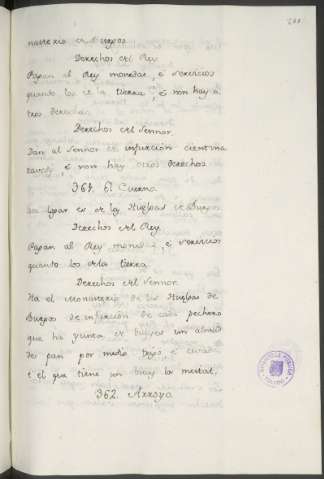 nasterio de Burgos
Derechos del Rey
Pagan al Rey monedas, é servicios
quanto los de la tierra, é non hay o
tros derechos.
Derechos del Sennor
Dan al Sennor de infurcion cient ma
ravedis é non hay otros derechos
361. El Cuerno
Este logar es de las Huelgas de Burgos
Derechos del Rey
Pagan al Rey monedas, é servicios
quanto los de la tierra
Derechos del Sennor
Ha el Monasterio de las Huelgas de
Burgos de infurcion de cada pechero
que ha yunta de bueyes un almud
de pan por medio trigo, é cevada
é el que tiene un buey la meitat.
362. Arroyo